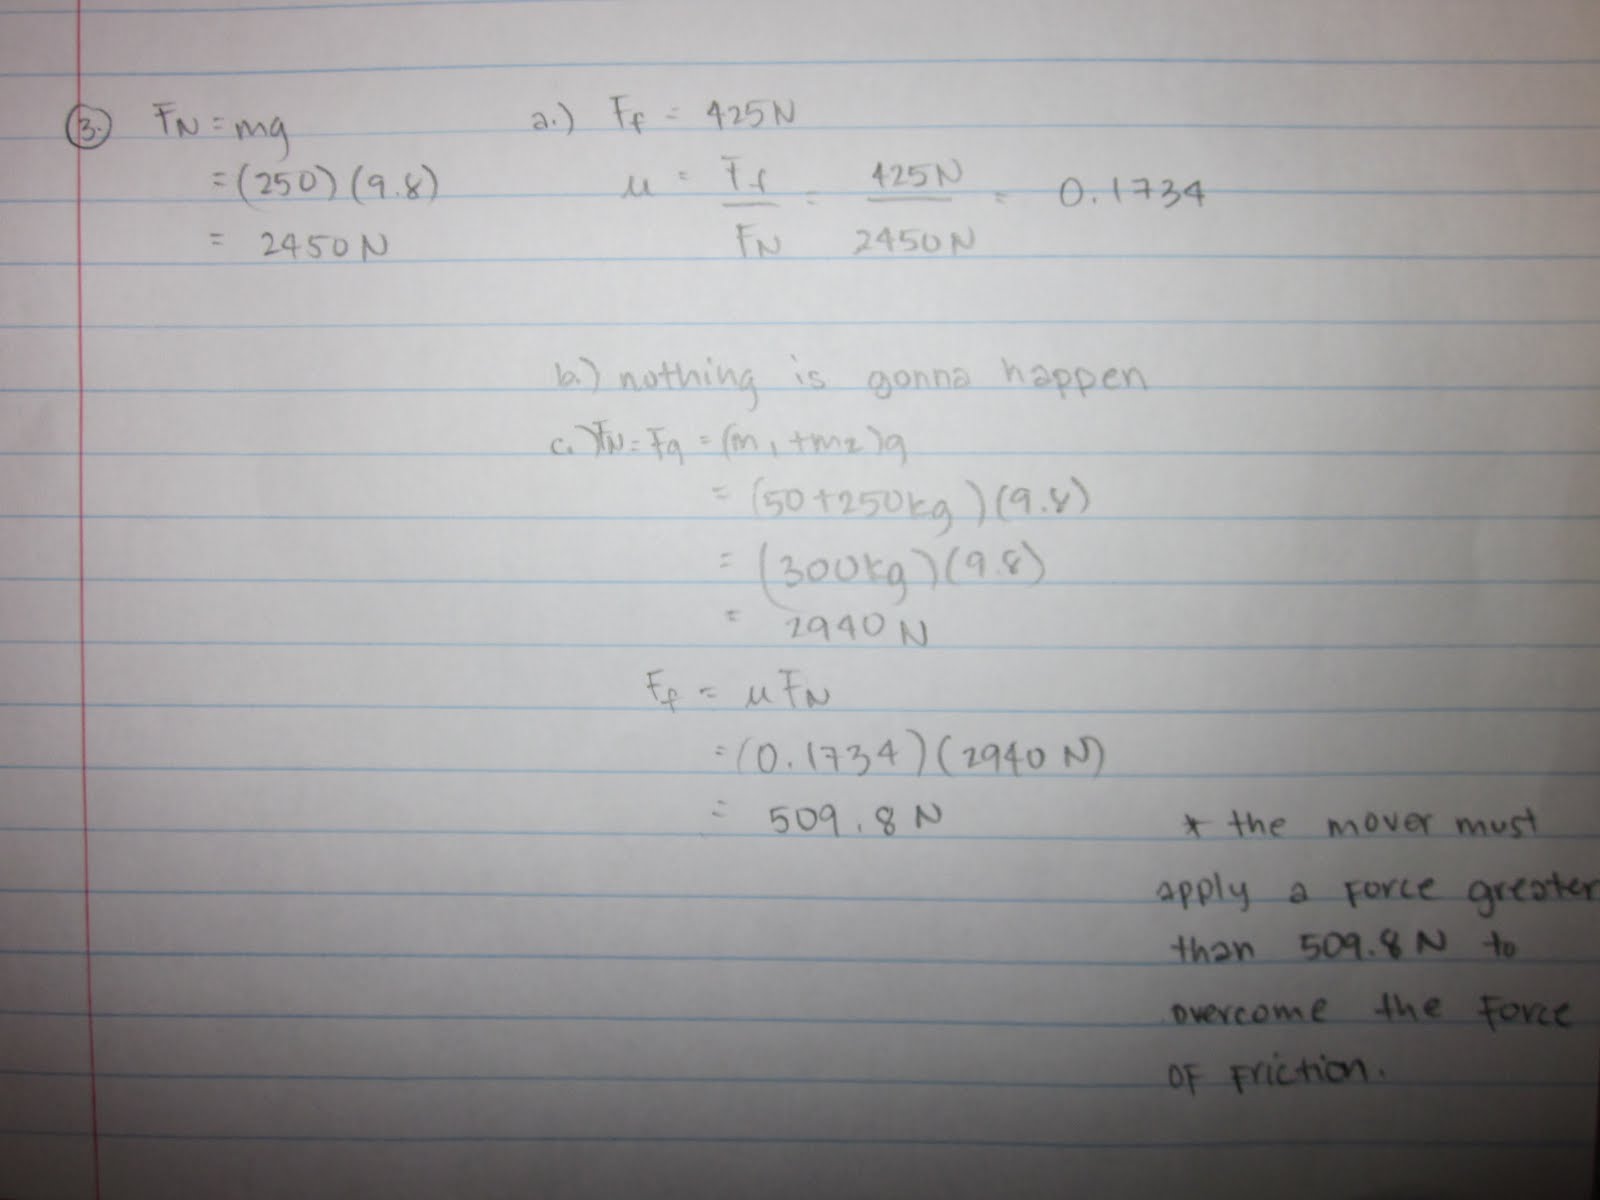 3. FN = mg
= (250)(9.8)
= 2450 N
a.) Ff = 425N
μ = Ff/FN = 425N/2450N = 0.1734
b.) nothing is gonna happen
c.) FN = Fg = (m1 + m2)g
= (50+250kg)(9.8)
= (300kg)(9.8)
= 2940 N
Ff = μFN
= (0.1734)(2940 N)
= 509.8 N
* the mover must
apply a force greater
than 509.8 N to
overcome the force
of friction.